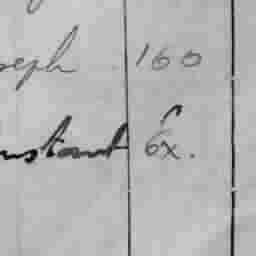 seph 160
nstant Ex.